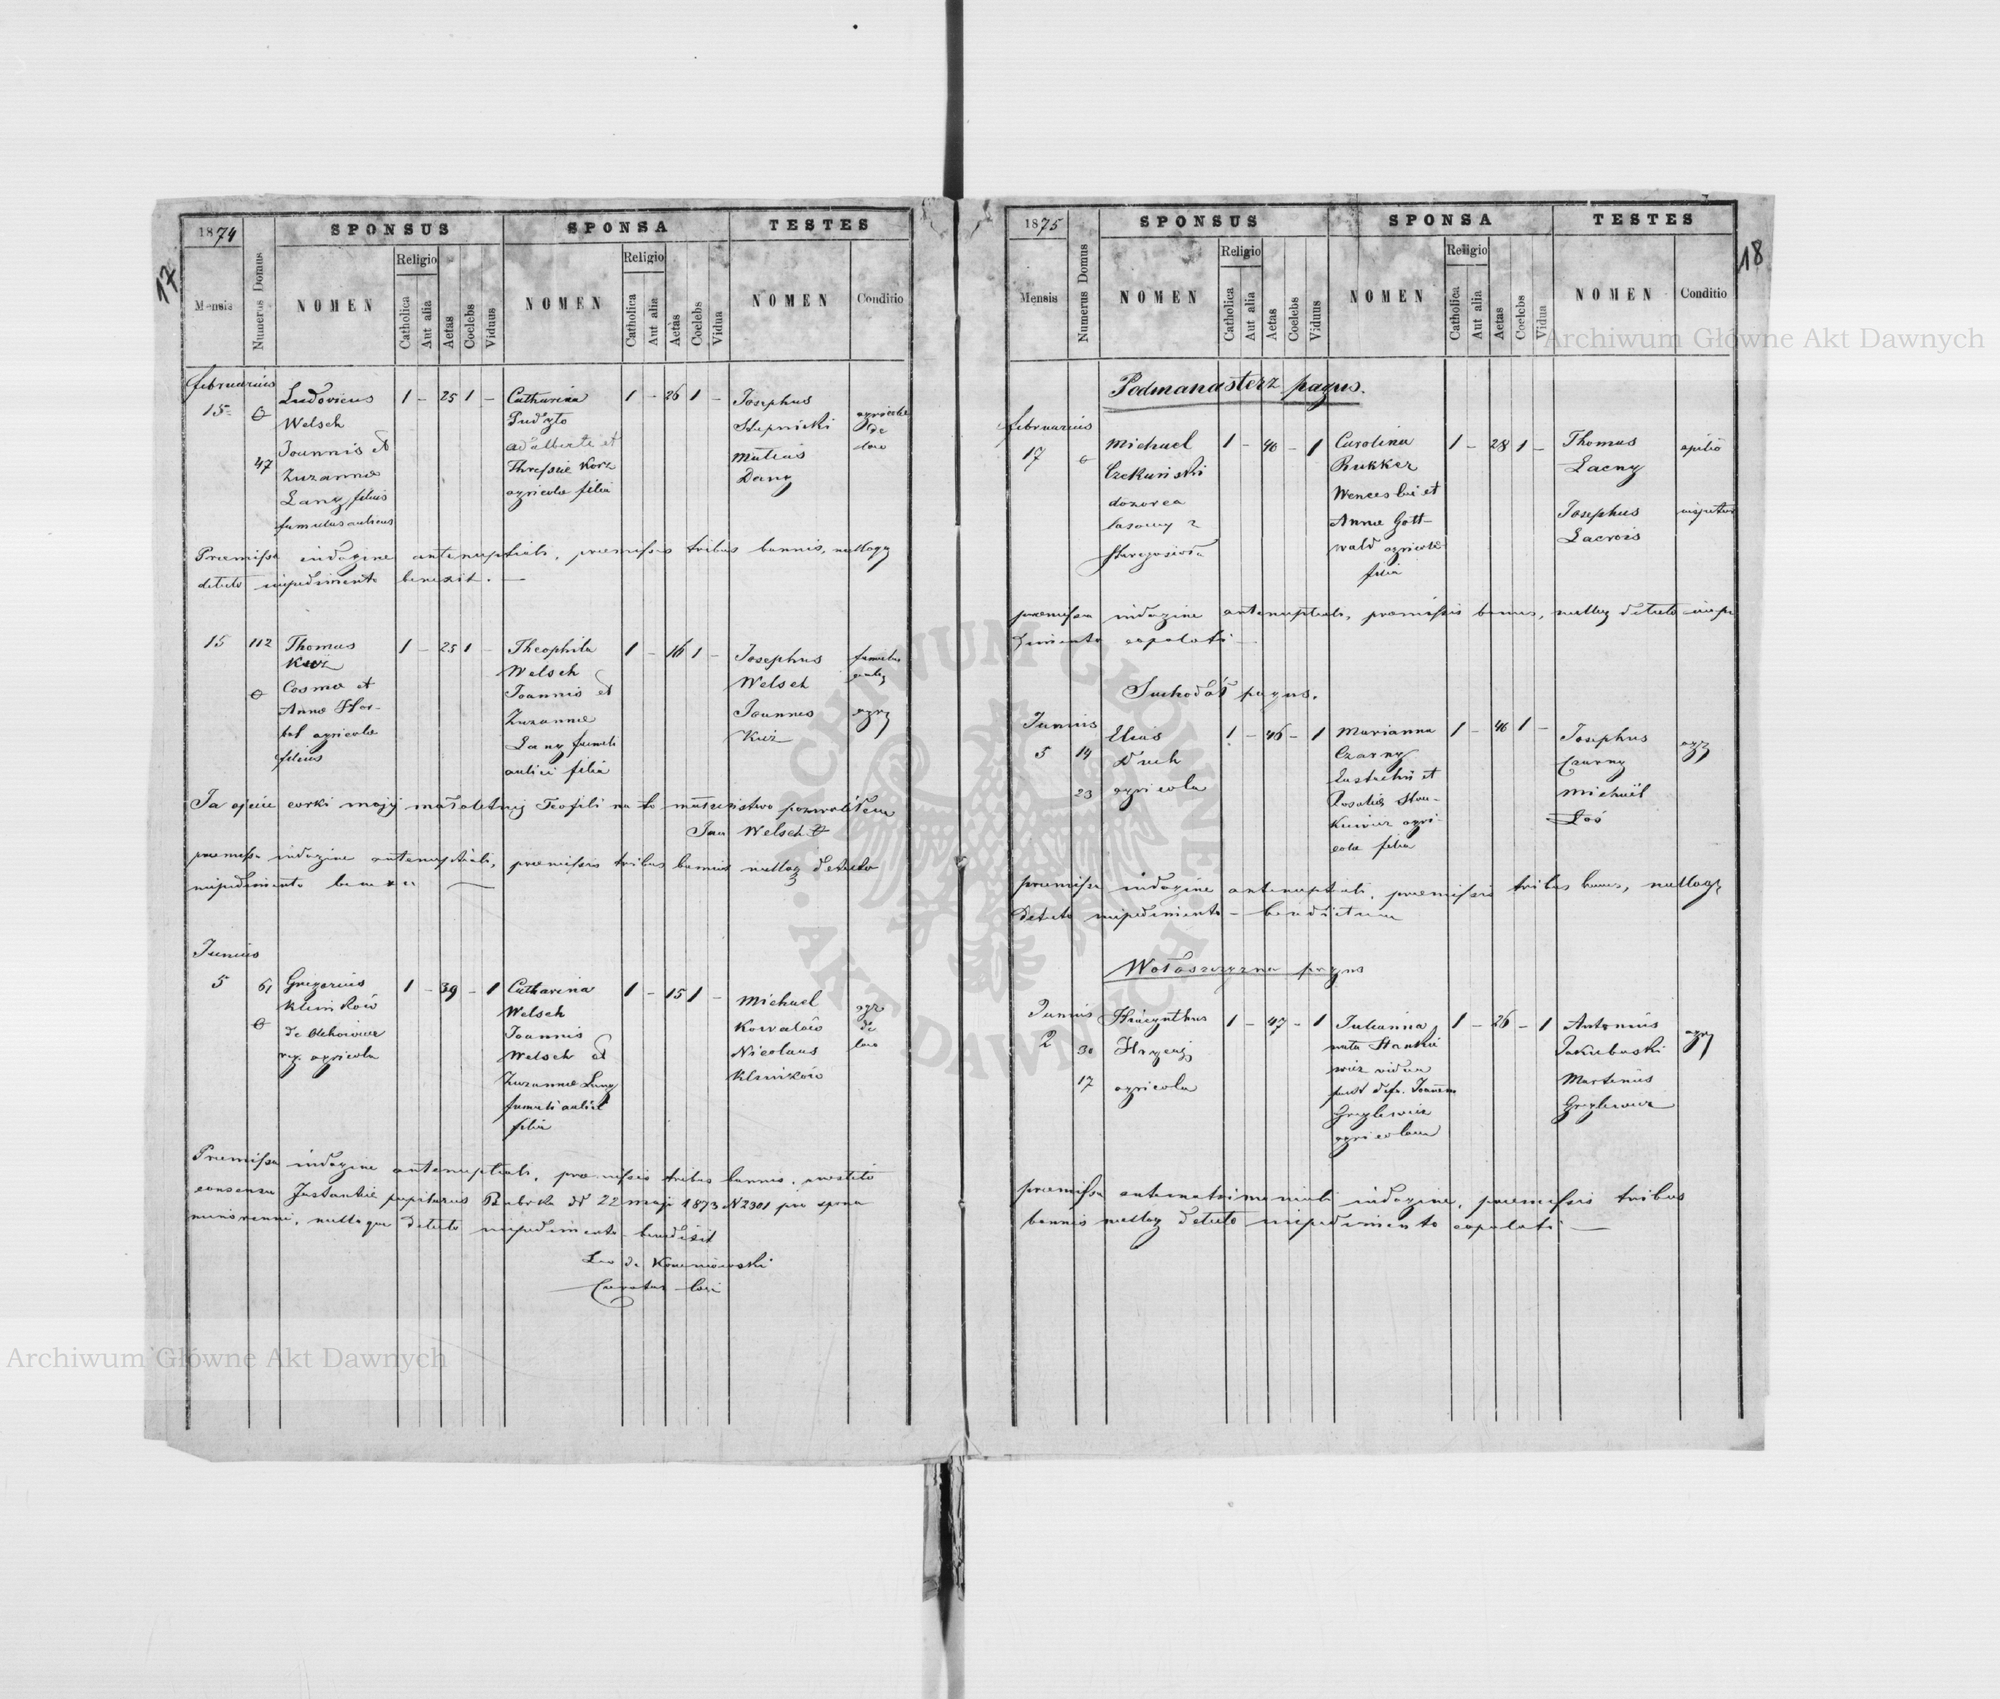 17
1874
SPONSUS
SPONSA
TESTES
Mensis
Numerus Domus
NOMEN
Religio
Catholica
Aut alia
Aetas
Coelebs
Viduus
NOMEN
Religio
Catholica
Aut alia
Aetas
Coelebs
Vidua
NOMEN
Conditio
februarius
15
47
Ludovicus
Welsch
Joannis et
Zuzanna
Lang filius
famulus aulicus
1 – 25 1 –
Catharina
Adalberti et
agricola filia
1 – 26 1 –
Josephus
Stepnicki
Matias
Dany
agricola
de
loco
Praemissa indagine antenuptiali, praemissis tribus bannis, nulloq
detecto impedimento
15
112
Thomas
Kuź
Cosma et
Anna
agricola
filius
1 – 25 1 –
Theophila
Welsch
Joannis et
Zuzanna
Lang famuli
aulici filia
1 – 16 1 –
Josephus
Welsch
Joannes
Kuź
famulus
agr
Ja ojciec corki mojij małoletnij Teofili na to małżeństwo pozwoliłem
Jan Welsch
praemissa indagine antenuptiali, praemissis tribus bannis nulloq detecto
impedimento
Junius
5
61
Gregorius
Klimków
de
agricola
1 – 39 – 1
Catharina
Welsch
Joannis
Welsch et
Zuzanna Lang
famuli aulici
filia
1 – 15 1 –
Michael
Kowalów
Nicolaus
Klimków
agr
de
loco
Praemissa indagine antenuptiali, praemissis tribus bannis,
consensu Instantiae pupilaris Bubrka dd 22 maji 1873 N 2301 pro sponsa
minorenni, nulloque detecto impedimento benedixit
Leo de
Curatus loci
18
1875
SPONSUS
SPONSA
TESTES
Mensis
Numerus Domus
NOMEN
Religio
Catholica
Aut alia
Aetas
Coelebs
Viduus
NOMEN
Religio
Catholica
Aut alia
Aetas
Coelebs
Vidua
NOMEN
Conditio
Podmanasterz pagus.
februarius
17
Michael
Czekuński
dozorca
lasowy z
1 – 40 – 1
Carolina
Rukker
Wenceslai et
Anna Gott-
wald agricola
filia
1 – 28 1 –
Thomas
Lacny
Josephus
Lacrois
opilio
praemissa indagine antenuptiali, praemissis bannis, nulloq detecto impe
dimento copulati
Suchodół pagus.
Junius
5
14
23
Elias
Duch
agricola
1 – 46 – 1
Marianna
Czarny
Eustachii et
Rosalia Stan-
kiewicz agri-
cola filia
1 – 40 1 –
Josephus
Czarny
Michaël
Łoś
agr
praemissa indagine antenuptiali, praemissis tribus bannis, nulloq
detecto impedimento –
Wołoszczyzna pagus
Junius
2
30
17
Hiacynthus
Hrycaj
agricola
1 – 47 – 1
Julianna
nata Stankie
wicz vidua
post def. Joannem
Gryglewicz
agricolam
1 – 26 – 1
Antonius
Jakubuski
Martinus
Gryglewicz
agr
praemissa antematrimoniali indagine, praemissis tribus
bannis nulloq detecto impedimento copulati
Archiwum Główne Akt Dawnych
Archiwum Główne Akt Dawnych
ARCHIWUM GŁÓWNE
AKT DAWNYCH